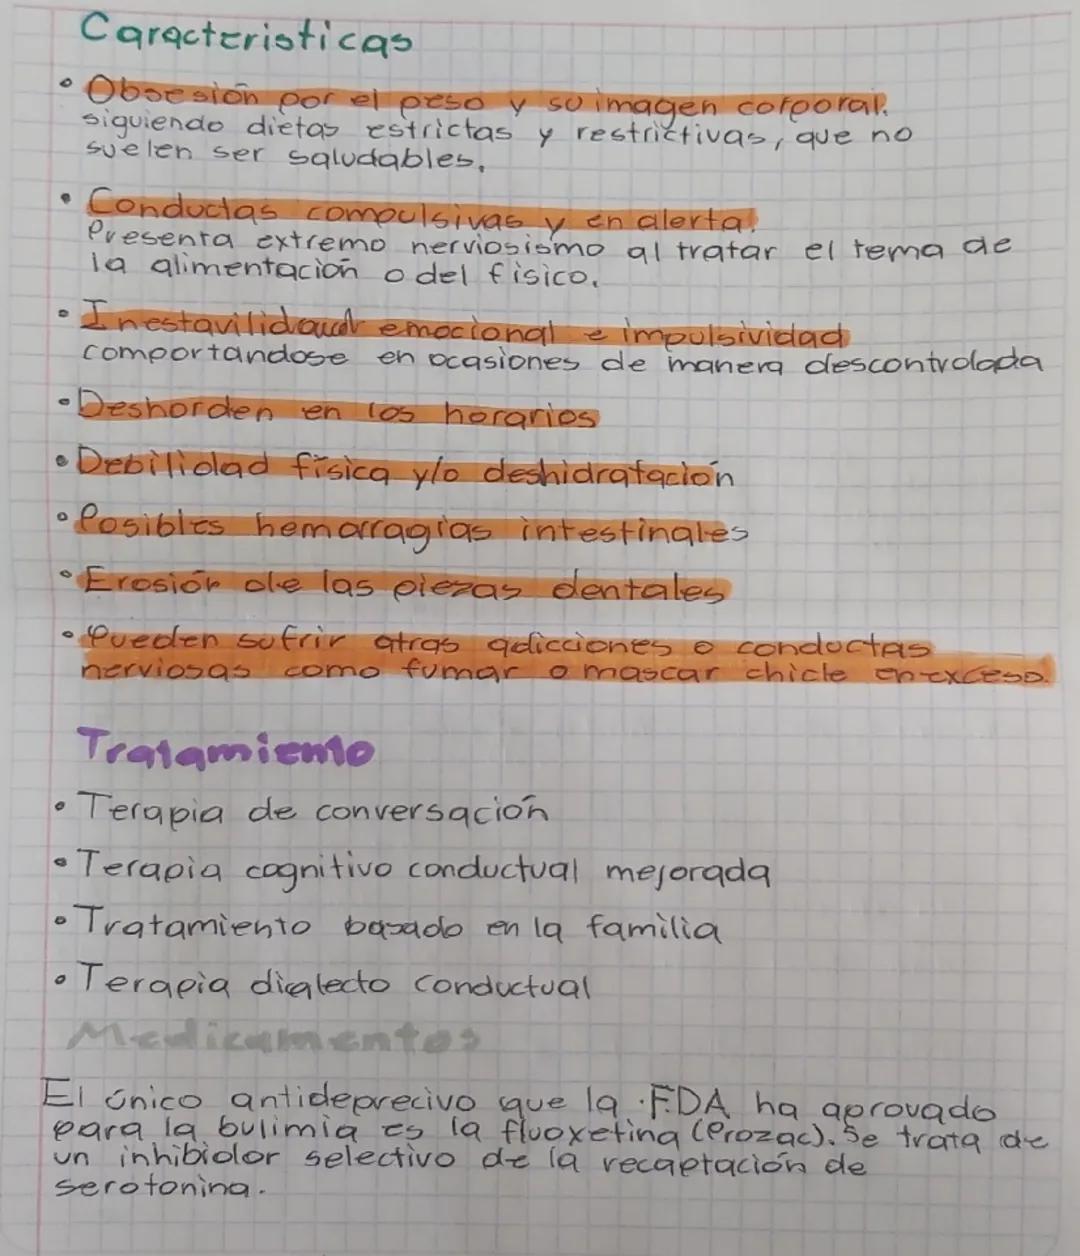 Caracteristicas
• Obsesión por el peso y su imagen corporal.
siguiendo dietas estrictas y restrictivas, que no
suelen ser saludables.
• Conductas compulsivas y en alerta.
Presenta extremo nerviosismo al tratar el tema de
la alimentación o del físico.
• Inestavilidad emocional e impulsividad
comportandose en ocasiones de manera descontrolada
• Deshorden en los horarios
• Debilidad física y/o deshidratación
• Posibles hemorragias intestinales
• Erosión de las piezas dentales
• Pueden sufrir otras adicciones o conductas
nerviosas como fumar o mascar chicle en exceso.
Tratamiento
• Terapia de conversación
• Terapia cognitivo conductual mejorada
• Tratamiento basado en la familia
• Terapia dialecto conductual
Medicamentos
El único antideprecivo que la FDA ha aprovado
para la bulimia es la fluoxetina (Prozac). Se trata de
un inhibidor selectivo de la recaptación de
serotonina.